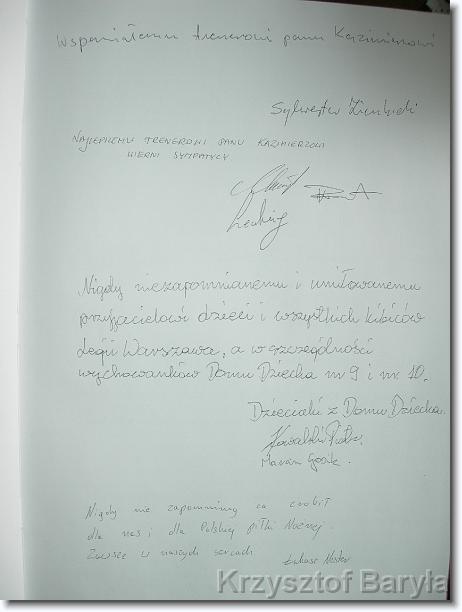 Wspaniałemu trenerowi panu Kazimierowi
Sylwester
NAJLEPSZEMU TRENEROWI PANU KAZIMIERZOWI
WIERNI SYMPATYCY
Nigdy niezapomnianemu i umiłowanemu
przyjacielowi dzieci i wszystkich kibiców
Legii Warszawa, a w szczególności
wychowanków Domu Dziecka nr 9 i nr. 10.
Dzieciaki z Domu Dziecka.
Kowalski
Marian
Nigdy nie zapomnimy co zrobił
dla nas i dla Polskiej Piłki Nożnej.
Zawsze w naszych sercach
Łukasz Nester
Krzysztof Baryła